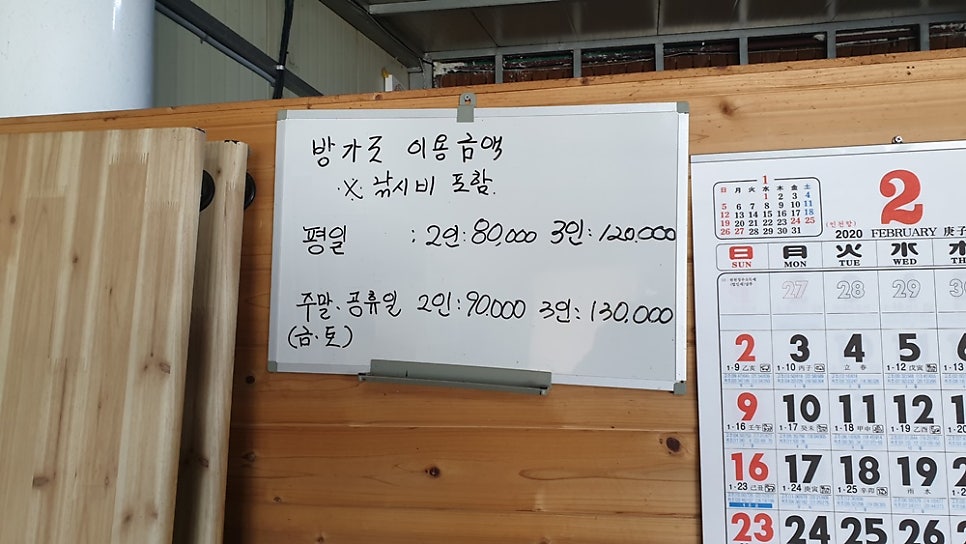 방가로 이용금액
※ 낚시비 포함.
평일 : 2인:80,000 3인:120,000
주말·공휴일 2인:90,000 3인:130,000
(금·토)
1
日 月 火 水 木 金 土
1 2 3 4
5 6 7 8 9 10 11
12 13 14 15 16 17 18
19 20 21 22 23 24 25
26 27 28 29 30 31
2
2020 FEBRUARY 庚子
日 月 火 水
SUN MON TUE WED TH
27 28 29 3
2 3 4 5
1·9 乙亥 1·10 丙子 立春 1·12 戊寅
9 10 11 12 1
1·16 壬午 1·17 癸未 1·18 甲申 1·19 乙酉
16 17 18 19
1·23 己丑 1·24 庚寅 1·25 辛卯 雨水
23 24 25 26